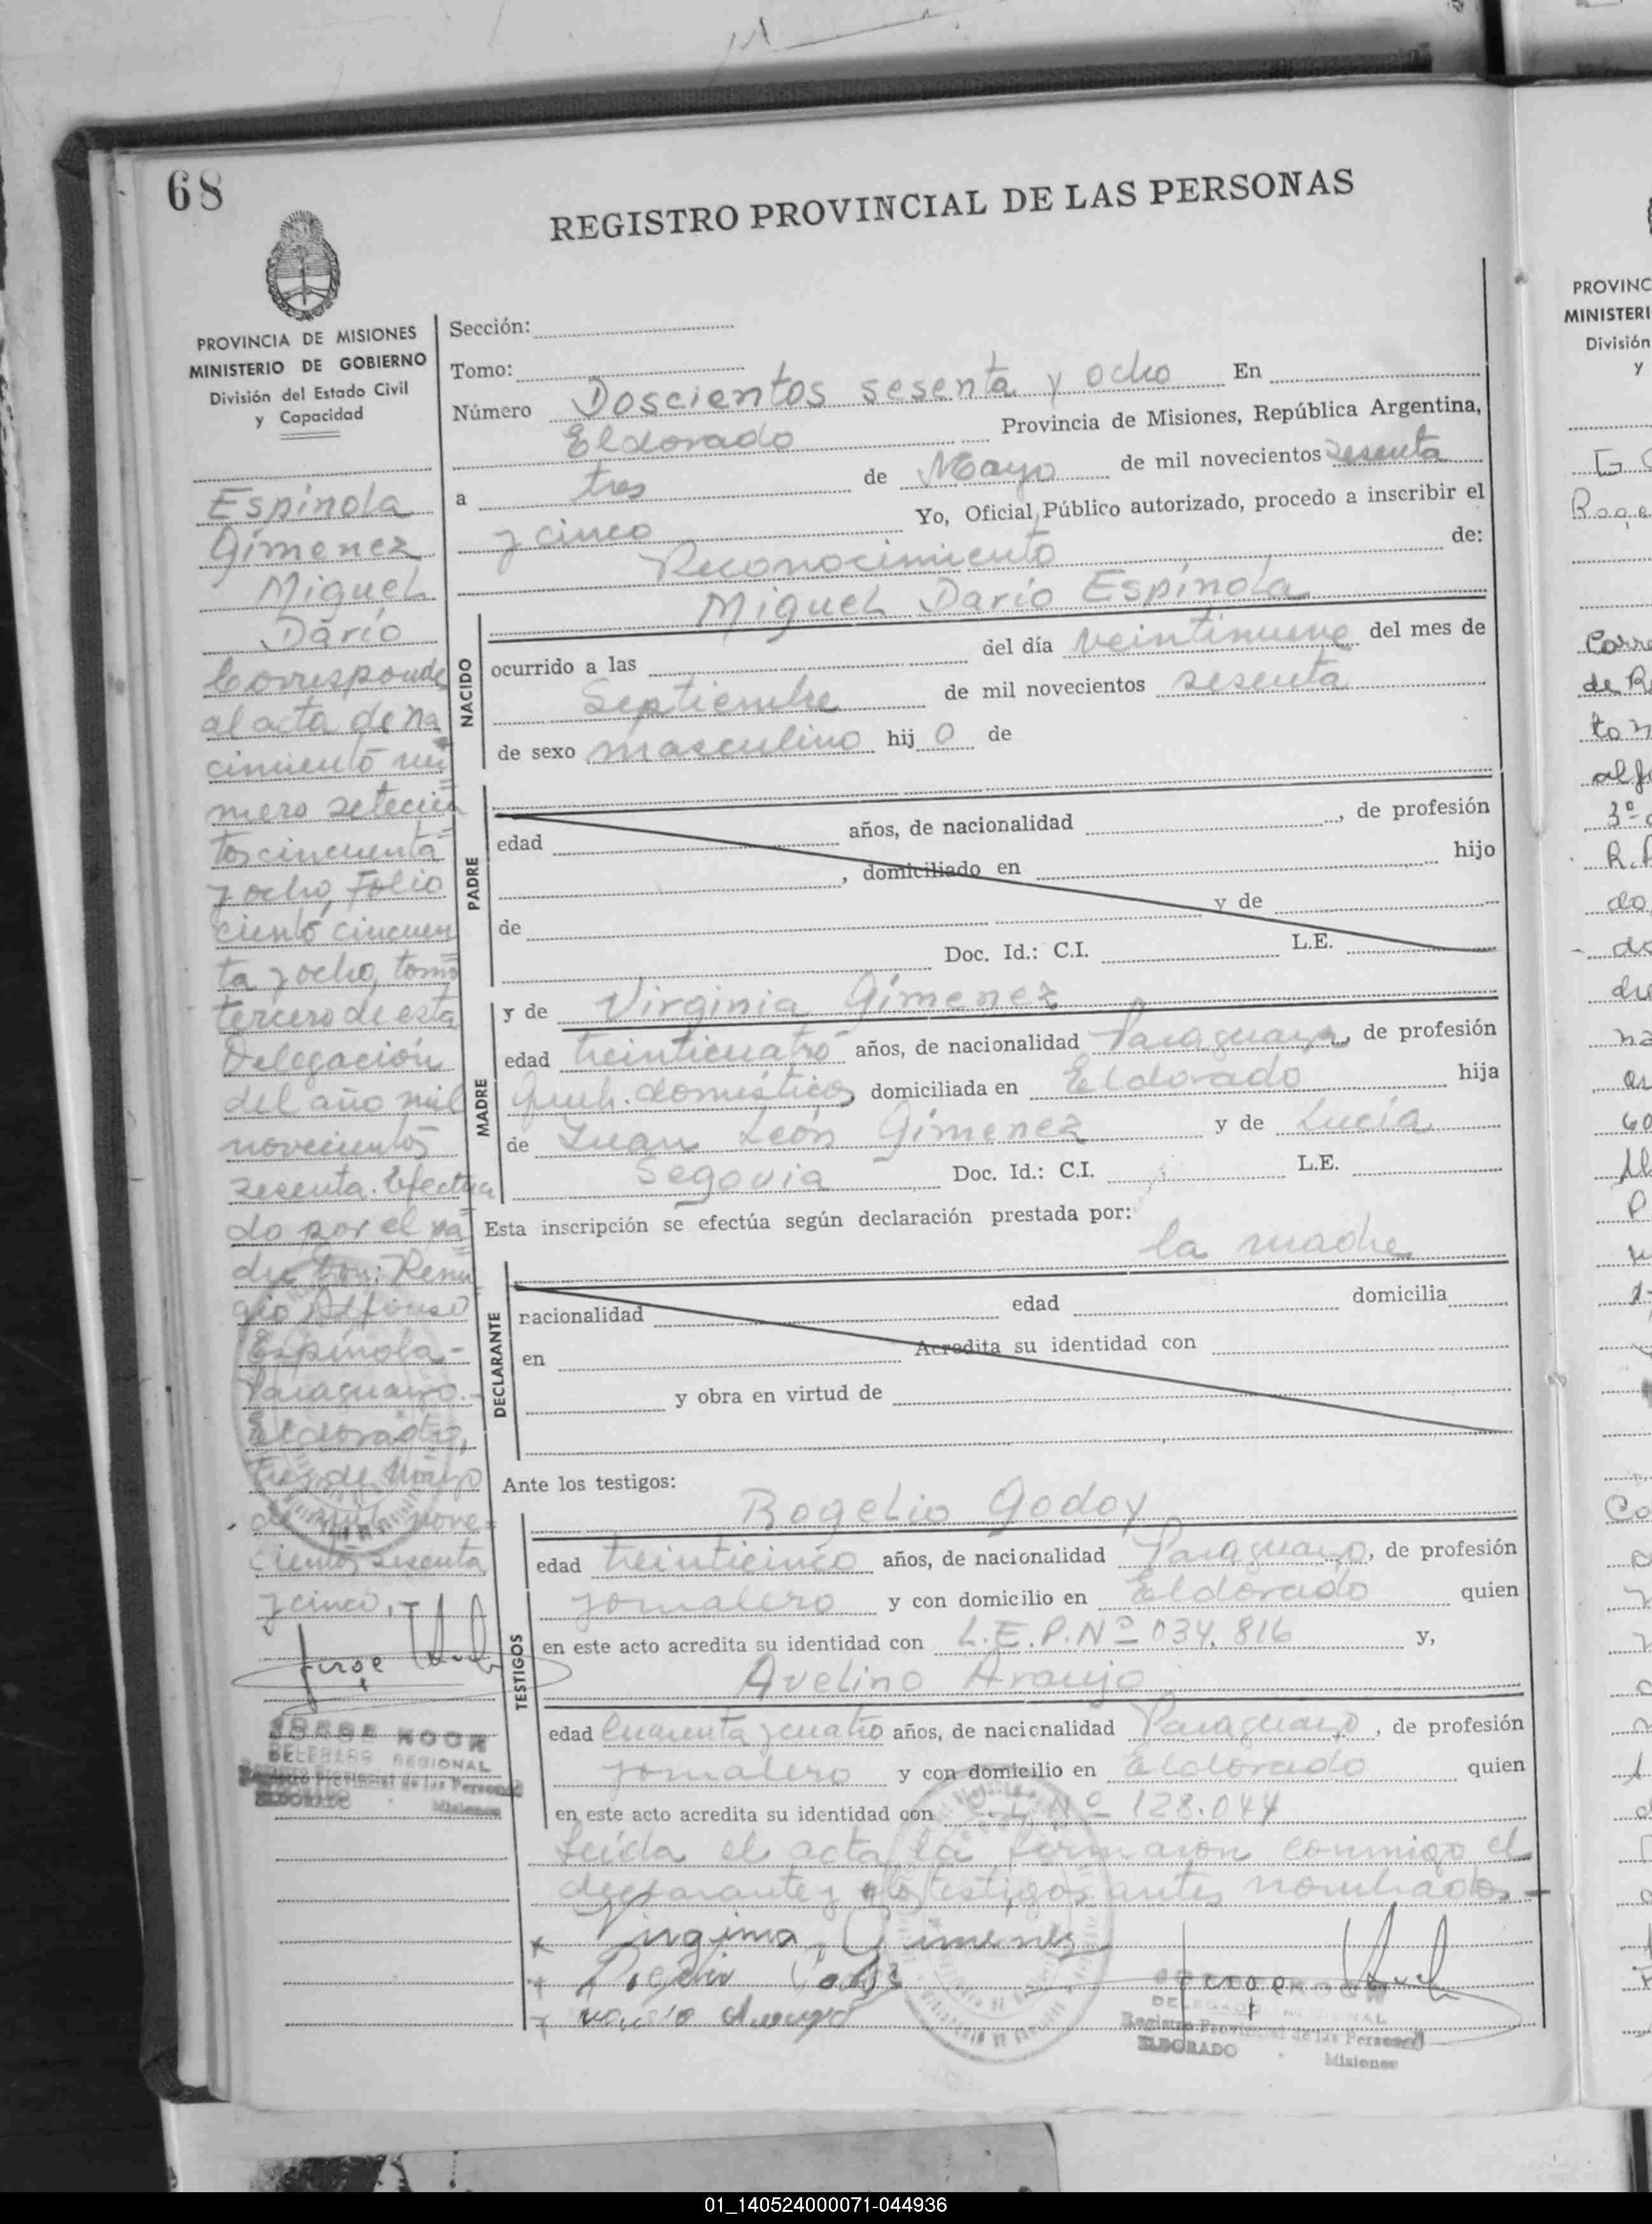 68
REGISTRO PROVINCIAL DE LAS PERSONAS
PROVINCIA DE MISIONES
MINISTERIO DE GOBIERNO
División del Estado Civil
y Capacidad
Espínola
Gímenez
Miguel
Darío
Corresponde
al acta de na
cimiento nú
mero setecien
tos cincuenta
y ocho, Folio
ciento cincuen
ta y ocho, tomo
tercero de esta
Delegación
del año mil
novecientos
sesenta. Efectua
do por el pa
dre Don: Remi
gio Alfonso
Espínola-
Paraguayo.-
Eldorado,
tres de Mayo
de mil nove-
cientos sesenta
y cinco.-
JORGE KOCH
DELEGADO REGIONAL
Registro Provincial de las Personas
ELDORADO Misiones
Sección:
Tomo:
Número Doscientos sesenta y ocho En
Eldorado Provincia de Misiones, República Argentina,
a tres de Mayo de mil novecientos sesenta
y cinco Yo, Oficial Público autorizado, procedo a inscribir el
Reconocimiento de:
Miguel Darío Espínola
NACIDO
ocurrido a las del día veintinueve del mes de
Septiembre de mil novecientos sesenta
de sexo masculino hij o de
PADRE
edad años, de nacionalidad , de profesión
, domiciliado en hijo
de y de
Doc. Id.: C.I. L.E.
MADRE
y de Virginia Gímenez
edad treinticuatro años, de nacionalidad Paraguaya, de profesión
Queh. domésticos, domiciliada en Eldorado hija
de Juan León Gímenez y de Lucía
Segovia Doc. Id.: C.I. L.E.
Esta inscripción se efectúa según declaración prestada por:
la madre
DECLARANTE
nacionalidad edad domicilia
en Acredita su identidad con
y obra en virtud de
Ante los testigos:
TESTIGOS
Rogelio Godoy
edad treinticinco años, de nacionalidad Paraguayo, de profesión
jornalero y con domicilio en Eldorado quien
en este acto acredita su identidad con L.E.P.Nº 034.816 y,
Avelino Araujo
edad Cuarenta y cuatro años, de nacionalidad Paraguayo, de profesión
jornalero y con domicilio en Eldorado quien
en este acto acredita su identidad con C.I. Nº 128.044
Leída el acta la firmaron conmigo el
declarante y los testigos antes nombrados.-
Virginia Gimenez
JORGE KOCH
DELEGADO REGIONAL
Registro Provincial de las Personas
ELDORADO Misiones
01_140524000071-044936